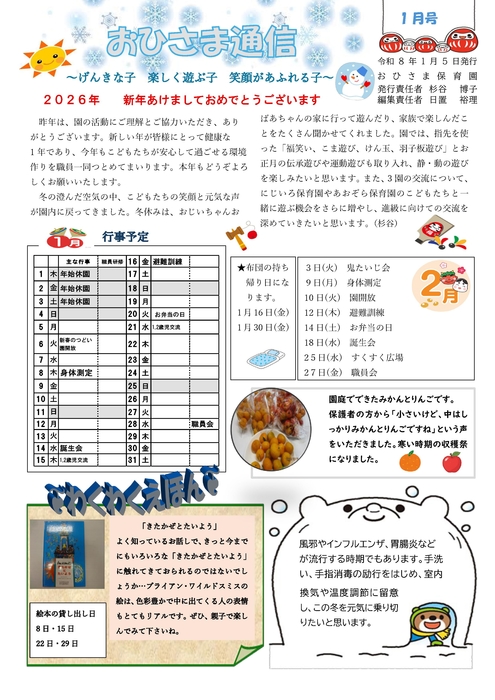 おひさま通信
1月号
令和8年1月5日発行
おひさま保育園
発行責任者 杉谷 博子
編集責任者 日置 裕理
～げんきな子 楽しく遊ぶ子 笑顔があふれる子～
2026年 新年あけましておめでとうございます
昨年は、園の活動にご理解とご協力いただき、あり
がとうございます。新しい年が皆様にとって健康な
1年であり、今年もこどもたちが安心して過ごせる環境
作りを職員一同つとめてまいります。本年もどうぞよろ
しくお願いいたします。
冬の澄んだ空気の中、こどもたちの笑顔と元気な声
が園内に戻ってきました。冬休みは、おじいちゃんお
ばあちゃんの家に行って遊んだり、家族で楽しんだこ
とをたくさん聞かせてくれました。園では、指先を使
った「福笑い、こま遊び、けん玉、羽子板遊び」とお
正月の伝承遊びや運動遊びも取り入れ、静・動の遊び
を楽しみたいと思います。また、3園の交流について、
にじいろ保育園やあおぞら保育園のこどもたちと一
緒に遊ぶ機会をさらに増やし、進級に向けての交流を
深めていきたいと思います。（杉谷）
1月 行事予定
主な行事 職員研修 16 金 避難訓練
1 木 年始休園 17 土
2 金 年始休園 18 日
3 土 年始休園 19 月
4 日 20 火 お弁当の日
5 月 21 水 1.2歳児交流
6 火 新春のつどい 園開放 22 木
7 水 23 金
8 木 身体測定 24 土
9 金 25 日
10 土 26 月
11 日 27 火
12 月 28 水 職員会
13 火 29 木
14 水 誕生会 30 金
15 木 1.2歳児交流 31 土
★布団の持ち
帰り日にな
ります。
1月16日(金)
1月30日(金)
3日(火) 鬼たいじ会
9日(月) 身体測定
10日(火) 園開放
12日(木) 避難訓練
14日(土) お弁当の日
18日(水) 誕生会
25日(水) すくすく広場
27日(金) 職員会
2月
園庭でできたみかんとりんごです。
保護者の方から「小さいけど、中はし
っかりみかんとりんごですね」という声
をいただきました。寒い時期の収穫祭
になりました。
わくわくえほん
「きたかぜとたいよう」
よく知っているお話しで、きっと今まで
にもいろいろな「きたかぜとたいよう」
に触れてきておられるのではないでし
ょうか…ブライアン・ワイルドスミスの
絵は、色彩豊かで中に出てくる人の表情
もとてもリアルです。ぜひ、親子で楽し
んでみて下さいね。
絵本の貸し出し日
8日・15日
22日・29日
風邪やインフルエンザ、胃腸炎など
が流行する時期でもあります。手洗
い、手指消毒の励行をはじめ、室内
換気や温度調節に留意
し、この冬を元気に乗り切
りたいと思います。